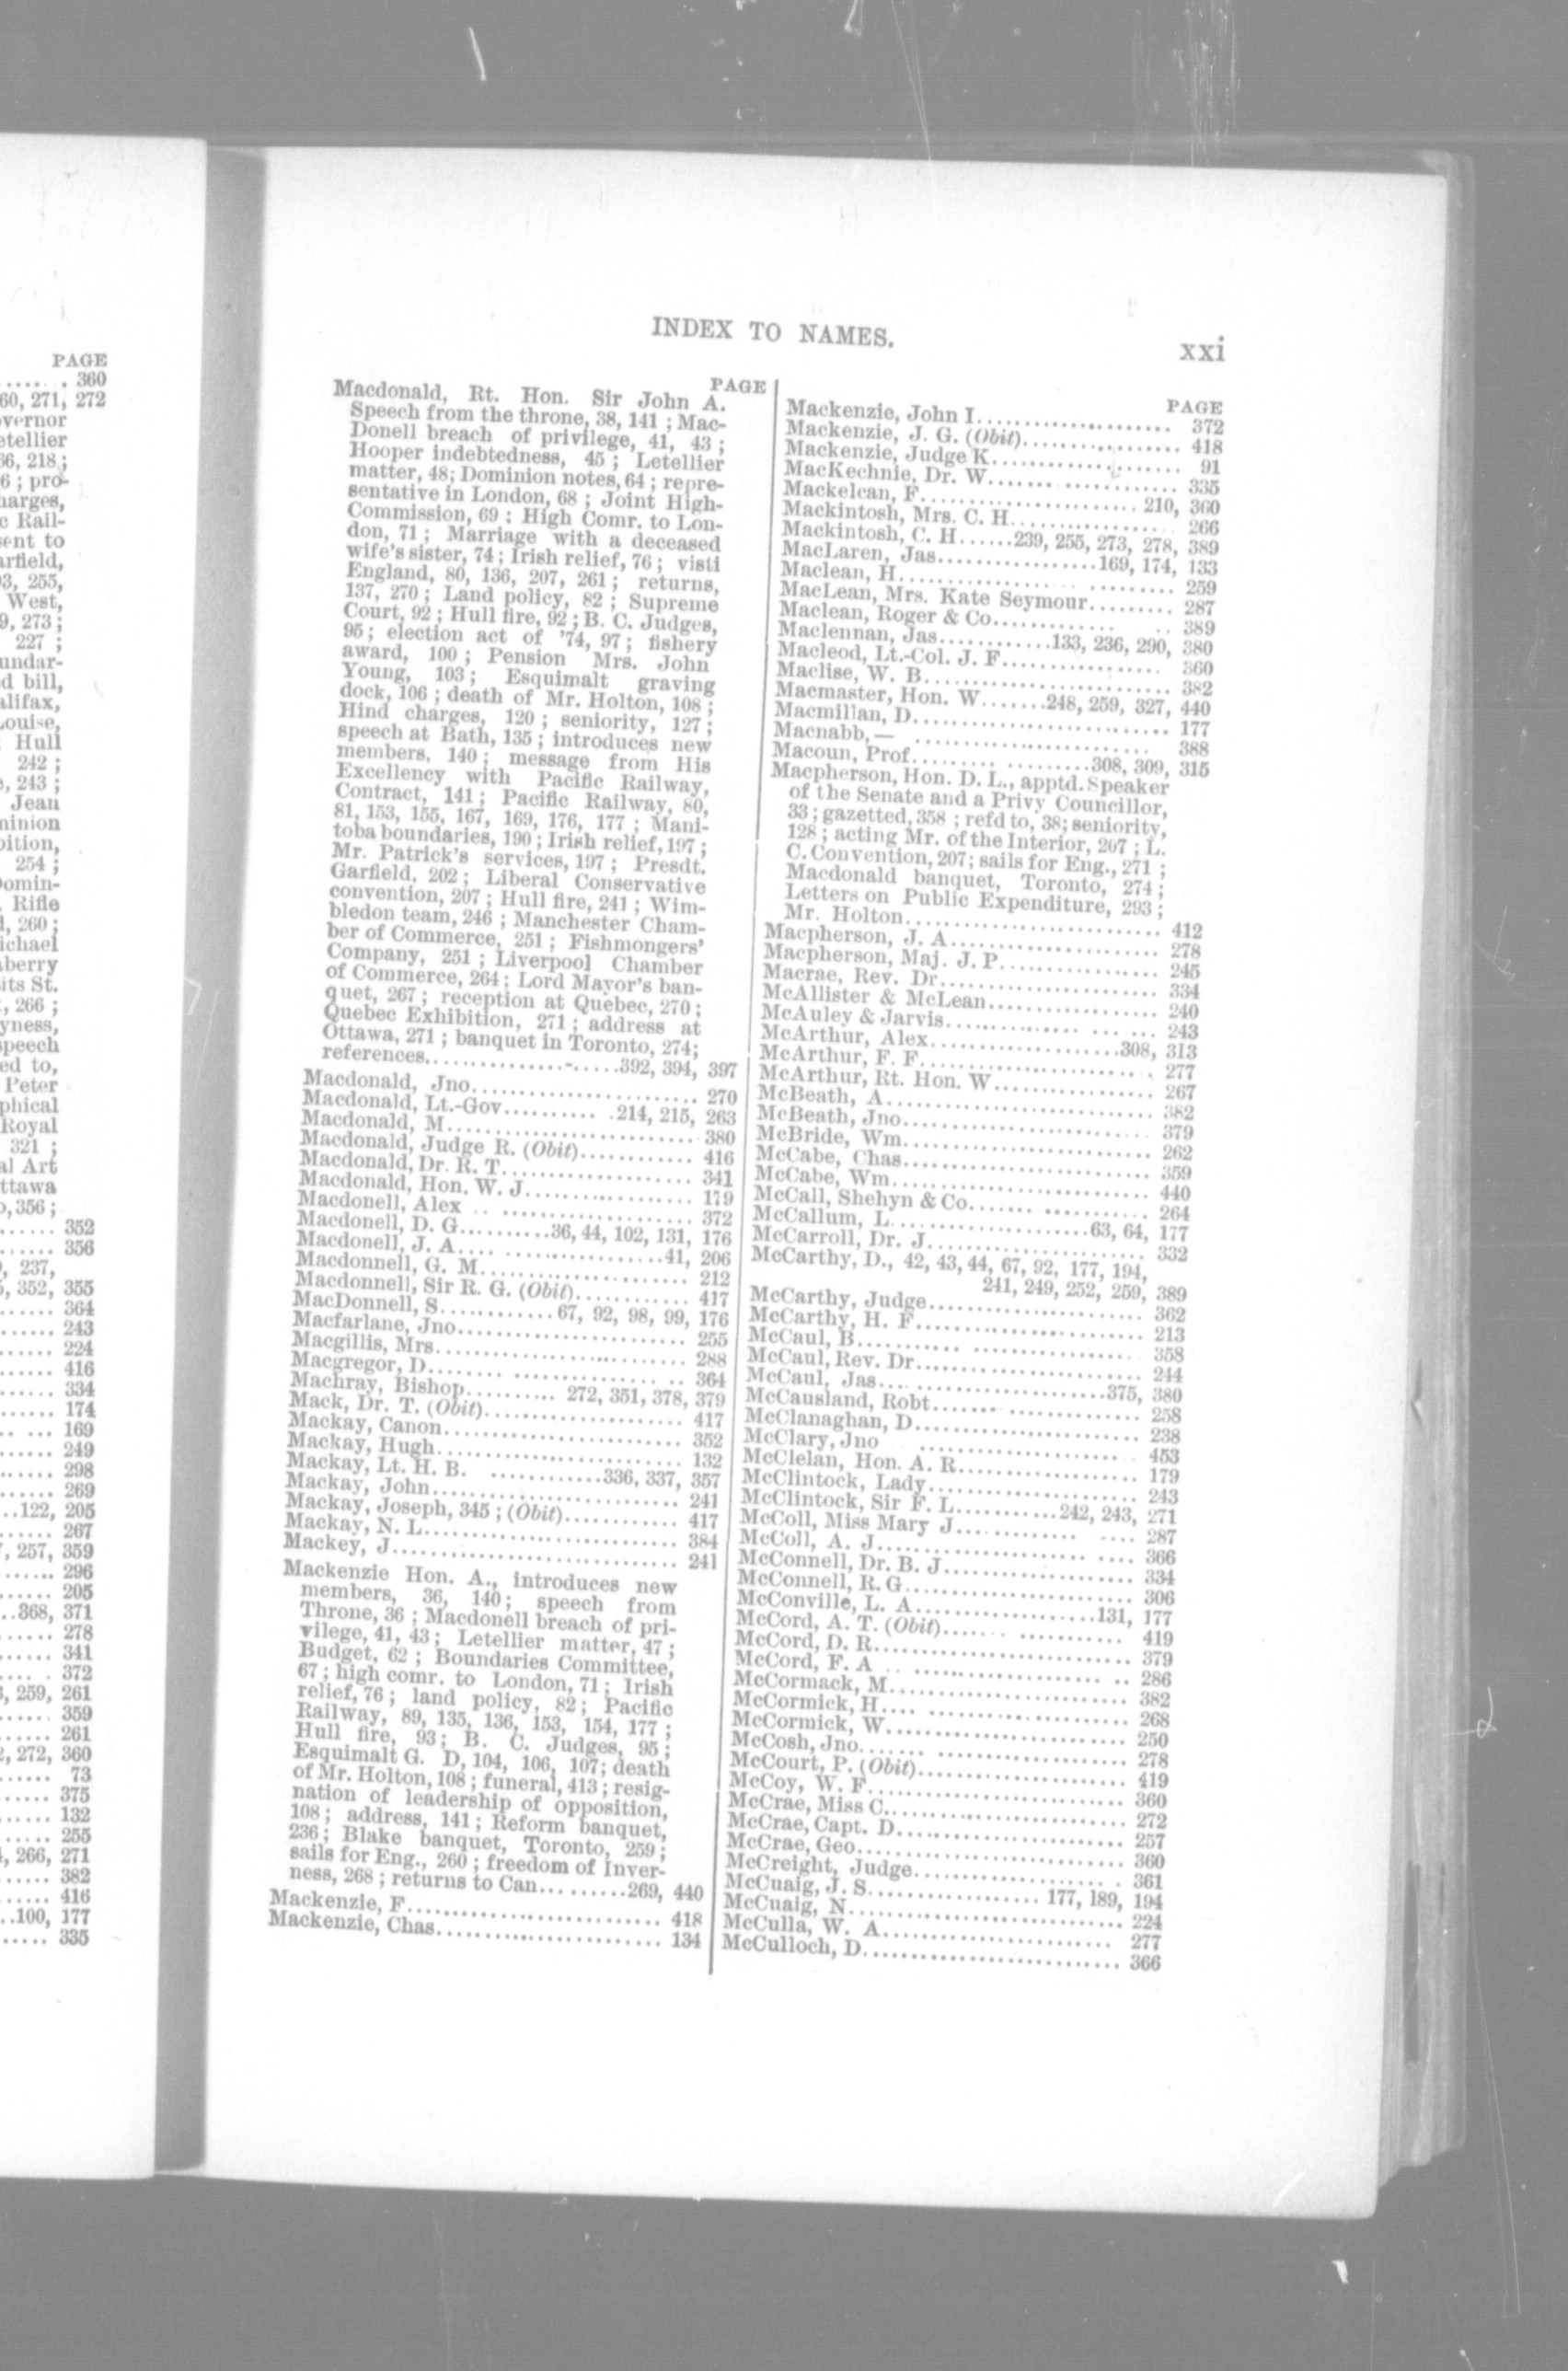 PAGE
360
60, 271, 272
vernor
etellier
66, 218;
6 ; pro-
harges,
c Rail-
sent to
arfield,
93, 255,
West,
9, 273;
227 ;
undar-
d bill,
alifax,
Louise,
Hull
242 ;
, 243 ;
Jean
minion
bition,
254 ;
Domin-
Rifle
l, 260;
ichael
aberry
its St.
, 266 ;
yness,
speech
ed to,
Peter
phical
Royal
321 ;
al Art
ttawa
o, 356 ;
352
356
, 237,
, 352, 355
364
243
224
416
334
174
169
249
298
269
..122, 205
267
, 257, 359
296
205
..368, 371
278
341
372
, 259, 261
359
261
2, 272, 360
73
375
132
255
, 266, 271
382
416
..100, 177
335
INDEX TO NAMES.
xxi
PAGE
Macdonald, Rt. Hon. Sir John A.
Speech from the throne, 38, 141 ; Mac-
Donell breach of privilege, 41, 43 ;
Hooper indebtedness, 45 ; Letellier
matter, 48; Dominion notes, 64 ; repre-
sentative in London, 68 ; Joint High-
Commission, 69 : High Comr. to Lon-
don, 71 ; Marriage with a deceased
wife's sister, 74 ; Irish relief, 76 ; visti
England, 80, 136, 207, 261 ; returns,
137, 270 ; Land policy, 82 ; Supreme
Court, 92 ; Hull fire, 92 ; B. C. Judges,
95 ; election act of '74, 97 ; fishery
award, 100 ; Pension Mrs. John
Young, 103 ; Esquimalt graving
dock, 106 ; death of Mr. Holton, 108 ;
Hind charges, 120 ; seniority, 127 ;
speech at Bath, 135 ; introduces new
members, 140 ; message from His
Excellency with Pacific Railway,
Contract, 141 ; Pacific Railway, 80,
81, 153, 155, 167, 169, 176, 177 ; Mani-
toba boundaries, 190 ; Irish relief, 197 ;
Mr. Patrick's services, 197 ; Presdt.
Garfield, 202 ; Liberal Conservative
convention, 207 ; Hull fire, 241 ; Wim-
bledon team, 246 ; Manchester Cham-
ber of Commerce, 251 ; Fishmongers'
Company, 251 ; Liverpool Chamber
of Commerce, 264 ; Lord Mayor's ban-
quet, 267 ; reception at Quebec, 270 ;
Quebec Exhibition, 271 ; address at
Ottawa, 271 ; banquet in Toronto, 274;
references....................392, 394, 397
Macdonald, Jno.......................... 270
Macdonald, Lt.-Gov............214, 215, 263
Macdonald, M............................380
Macdonald, Judge R. (Obit)............. 416
Macdonald, Dr. R. T..................... 341
Macdonald, Hon. W. J.................... 179
Macdonell, Alex ........................ 372
Macdonell, D. G..........36, 44, 102, 131, 176
Macdonell, J. A......................41, 206
Macdonnell, G. M........................ 212
Macdonnell, Sir R. G. (Obit)............ 417
MacDonnell, S............67, 92, 98, 99, 176
Macfarlane, Jno......................... 255
Macgillis, Mrs.......................... 288
Macgregor, D............................ 364
Machray, Bishop.......... 272, 351, 378, 379
Mack, Dr. T. (Obit)..................... 417
Mackay, Canon........................... 352
Mackay, Hugh............................ 132
Mackay, Lt. H. B. ............336, 337, 357
Mackay, John............................ 241
Mackay, Joseph, 345 ; (Obit)............ 417
Mackay, N. L............................ 384
Mackey, J............................... 241
Mackenzie Hon. A., introduces new
members, 36, 140; speech from
Throne, 36 ; Macdonell breach of pri-
vilege, 41, 43 ; Letellier matter, 47 ;
Budget, 62 ; Boundaries Committee,
67 ; high comr. to London, 71 ; Irish
relief, 76 ; land policy, 82 ; Pacific
Railway, 89, 135, 136, 153, 154, 177 ;
Hull fire, 93 ; B. C. Judges, 95 ;
Esquimalt G. D, 104, 106, 107; death
of Mr. Holton, 108 ; funeral, 413 ; resig-
nation of leadership of opposition,
108 ; address, 141 ; Reform banquet,
236 ; Blake banquet, Toronto, 259 ;
sails for Eng., 260 ; freedom of Inver-
ness, 268 ; returns to Can.........269, 440
Mackenzie, F............................ 418
Mackenzie, Chas......................... 134
PAGE
Mackenzie, John I....................... 372
Mackenzie, J. G. (Obit)................. 418
Mackenzie, Judge K...................... 91
MacKechnie, Dr. W....................... 335
Mackelcan, F....................... 210, 360
Mackintosh, Mrs. C. H................... 266
Mackintosh, C. H......239, 255, 273, 278, 389
MacLaren, Jas.................169, 174, 133
Maclean, H.............................. 259
MacLean, Mrs. Kate Seymour......... 287
Maclean, Roger & Co..................... 389
Maclennan, Jas............133, 236, 290, 380
Macleod, Lt.-Col. J. F.................. 360
Maclise, W. B........................... 382
Macmaster, Hon. W.......248, 259, 327, 440
Macmillan, D............................ 177
Macnabb,— .............................. 388
Macoun, Prof......... .........308, 309, 315
Macpherson, Hon. D. L., apptd. Speaker
of the Senate and a Privy Councillor,
33 ; gazetted, 358 ; refd to, 38; seniority,
128 ; acting Mr. of the Interior, 207 ; L.
C. Convention, 207; sails for Eng., 271 ;
Macdonald banquet, Toronto, 274 ;
Letters on Public Expenditure, 293 ;
Mr. Holton.............................. 412
Macpherson, J. A........................ 278
Macpherson, Maj. J. P................... 245
Macrae, Rev. Dr......................... 334
McAllister & McLean..................... 240
McAuley & Jarvis........................ 243
McArthur, Alex.....................308, 313
McArthur, F. F.......................... 277
McArthur, Rt. Hon. W.................... 267
McBeath, A.............................. 382
McBeath, Jno............................ 379
McBride, Wm............................. 262
McCabe, Chas............................ 359
McCabe, Wm.............................. 440
McCall, Shehyn & Co..................... 264
McCallum, L......................63, 64, 177
McCarroll, Dr. J........................ 332
McCarthy, D., 42, 43, 44, 67, 92, 177, 194,
241, 249, 252, 259, 389
McCarthy, Judge......................... 362
McCarthy, H. F.......................... 213
McCaul, B............................... 358
McCaul, Rev. Dr......................... 244
McCaul, Jas..........................375, 380
McCausland, Robt........................ 258
McClanaghan, D.......................... 238
McClary, Jno ........................... 453
McClelan, Hon. A. R..................... 179
McClintock, Lady........................ 243
McClintock, Sir F. L..........242, 243, 271
McColl, Miss Mary J..................... 287
McColl, A. J............................ 366
McConnell, Dr. B. J..................... 334
McConnell, R. G......................... 306
McConville, L. A.....................131, 177
McCord, A. T. (Obit).................... 419
McCord, D. R............................ 379
McCord, F. A ........................... 286
McCormack, M............................ 382
McCormick, H............................ 268
McCormick, W............................ 250
McCosh, Jno............................. 278
McCourt, P. (Obit)...................... 419
McCoy, W. F............................. 360
McCrae, Miss C.......................... 272
McCrae, Capt. D......................... 257
McCrae, Geo............................. 360
McCreight, Judge........................ 361
McCuaig, J. S.................. 177, 189, 194
McCuaig, N.............................. 224
McCulla, W. A........................... 277
McCulloch, D............................ 366